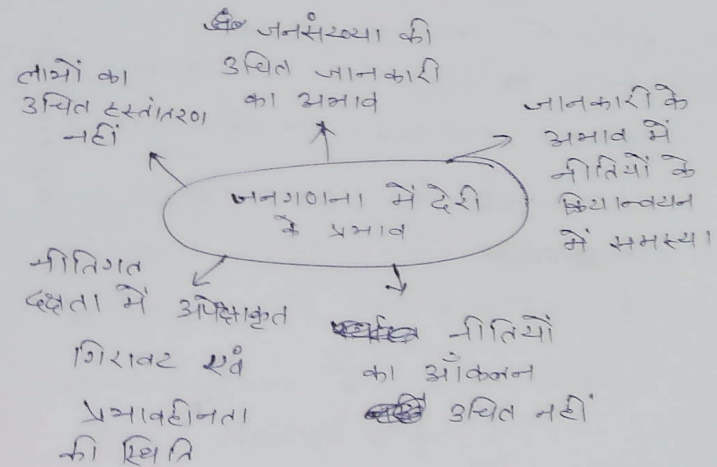 जनसंख्या की
उचित जानकारी
का अभाव
लाभों का
उचित हस्तांतरण
नहीं
जानकारी के
अभाव में
नीतियों के
क्रियान्वयन
में समस्या
जनगणना में देरी
के प्रभाव
नीतिगत
दक्षता में अपेक्षाकृत
गिरावट एवं
प्रभावहीनता
की स्थिति
नीतियों
का आँकलन
उचित नहीं